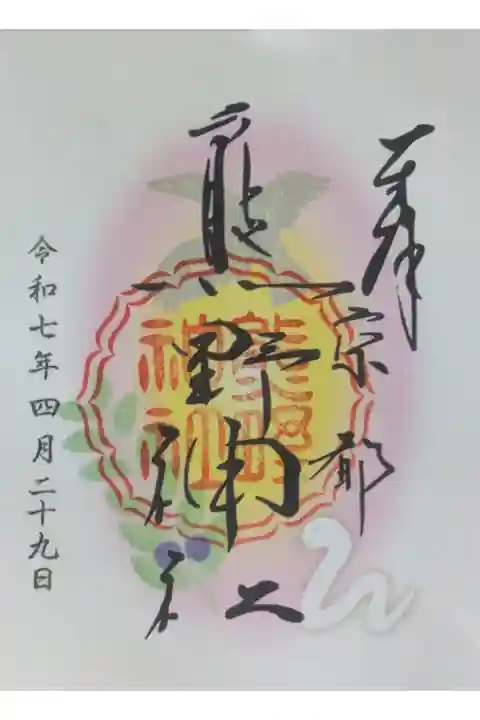 奉拝
京都
熊野神社
令和七年四月二十九日
熊野
神社